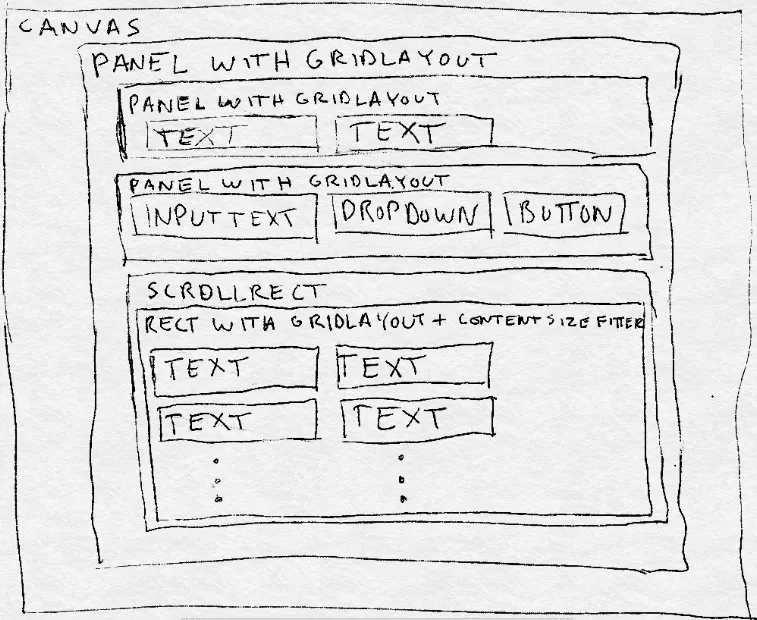 CANVAS
PANEL WITH GRIDLAYOUT
PANEL WITH GRIDLAYOUT
TEXT TEXT
PANEL WITH GRIDLAYOUT
INPUTTEXT DROPDOWN BUTTON
SCROLLRECT
RECT WITH GRIDLAYOUT + CONTENTSIZE FITTER
TEXT TEXT
TEXT TEXT